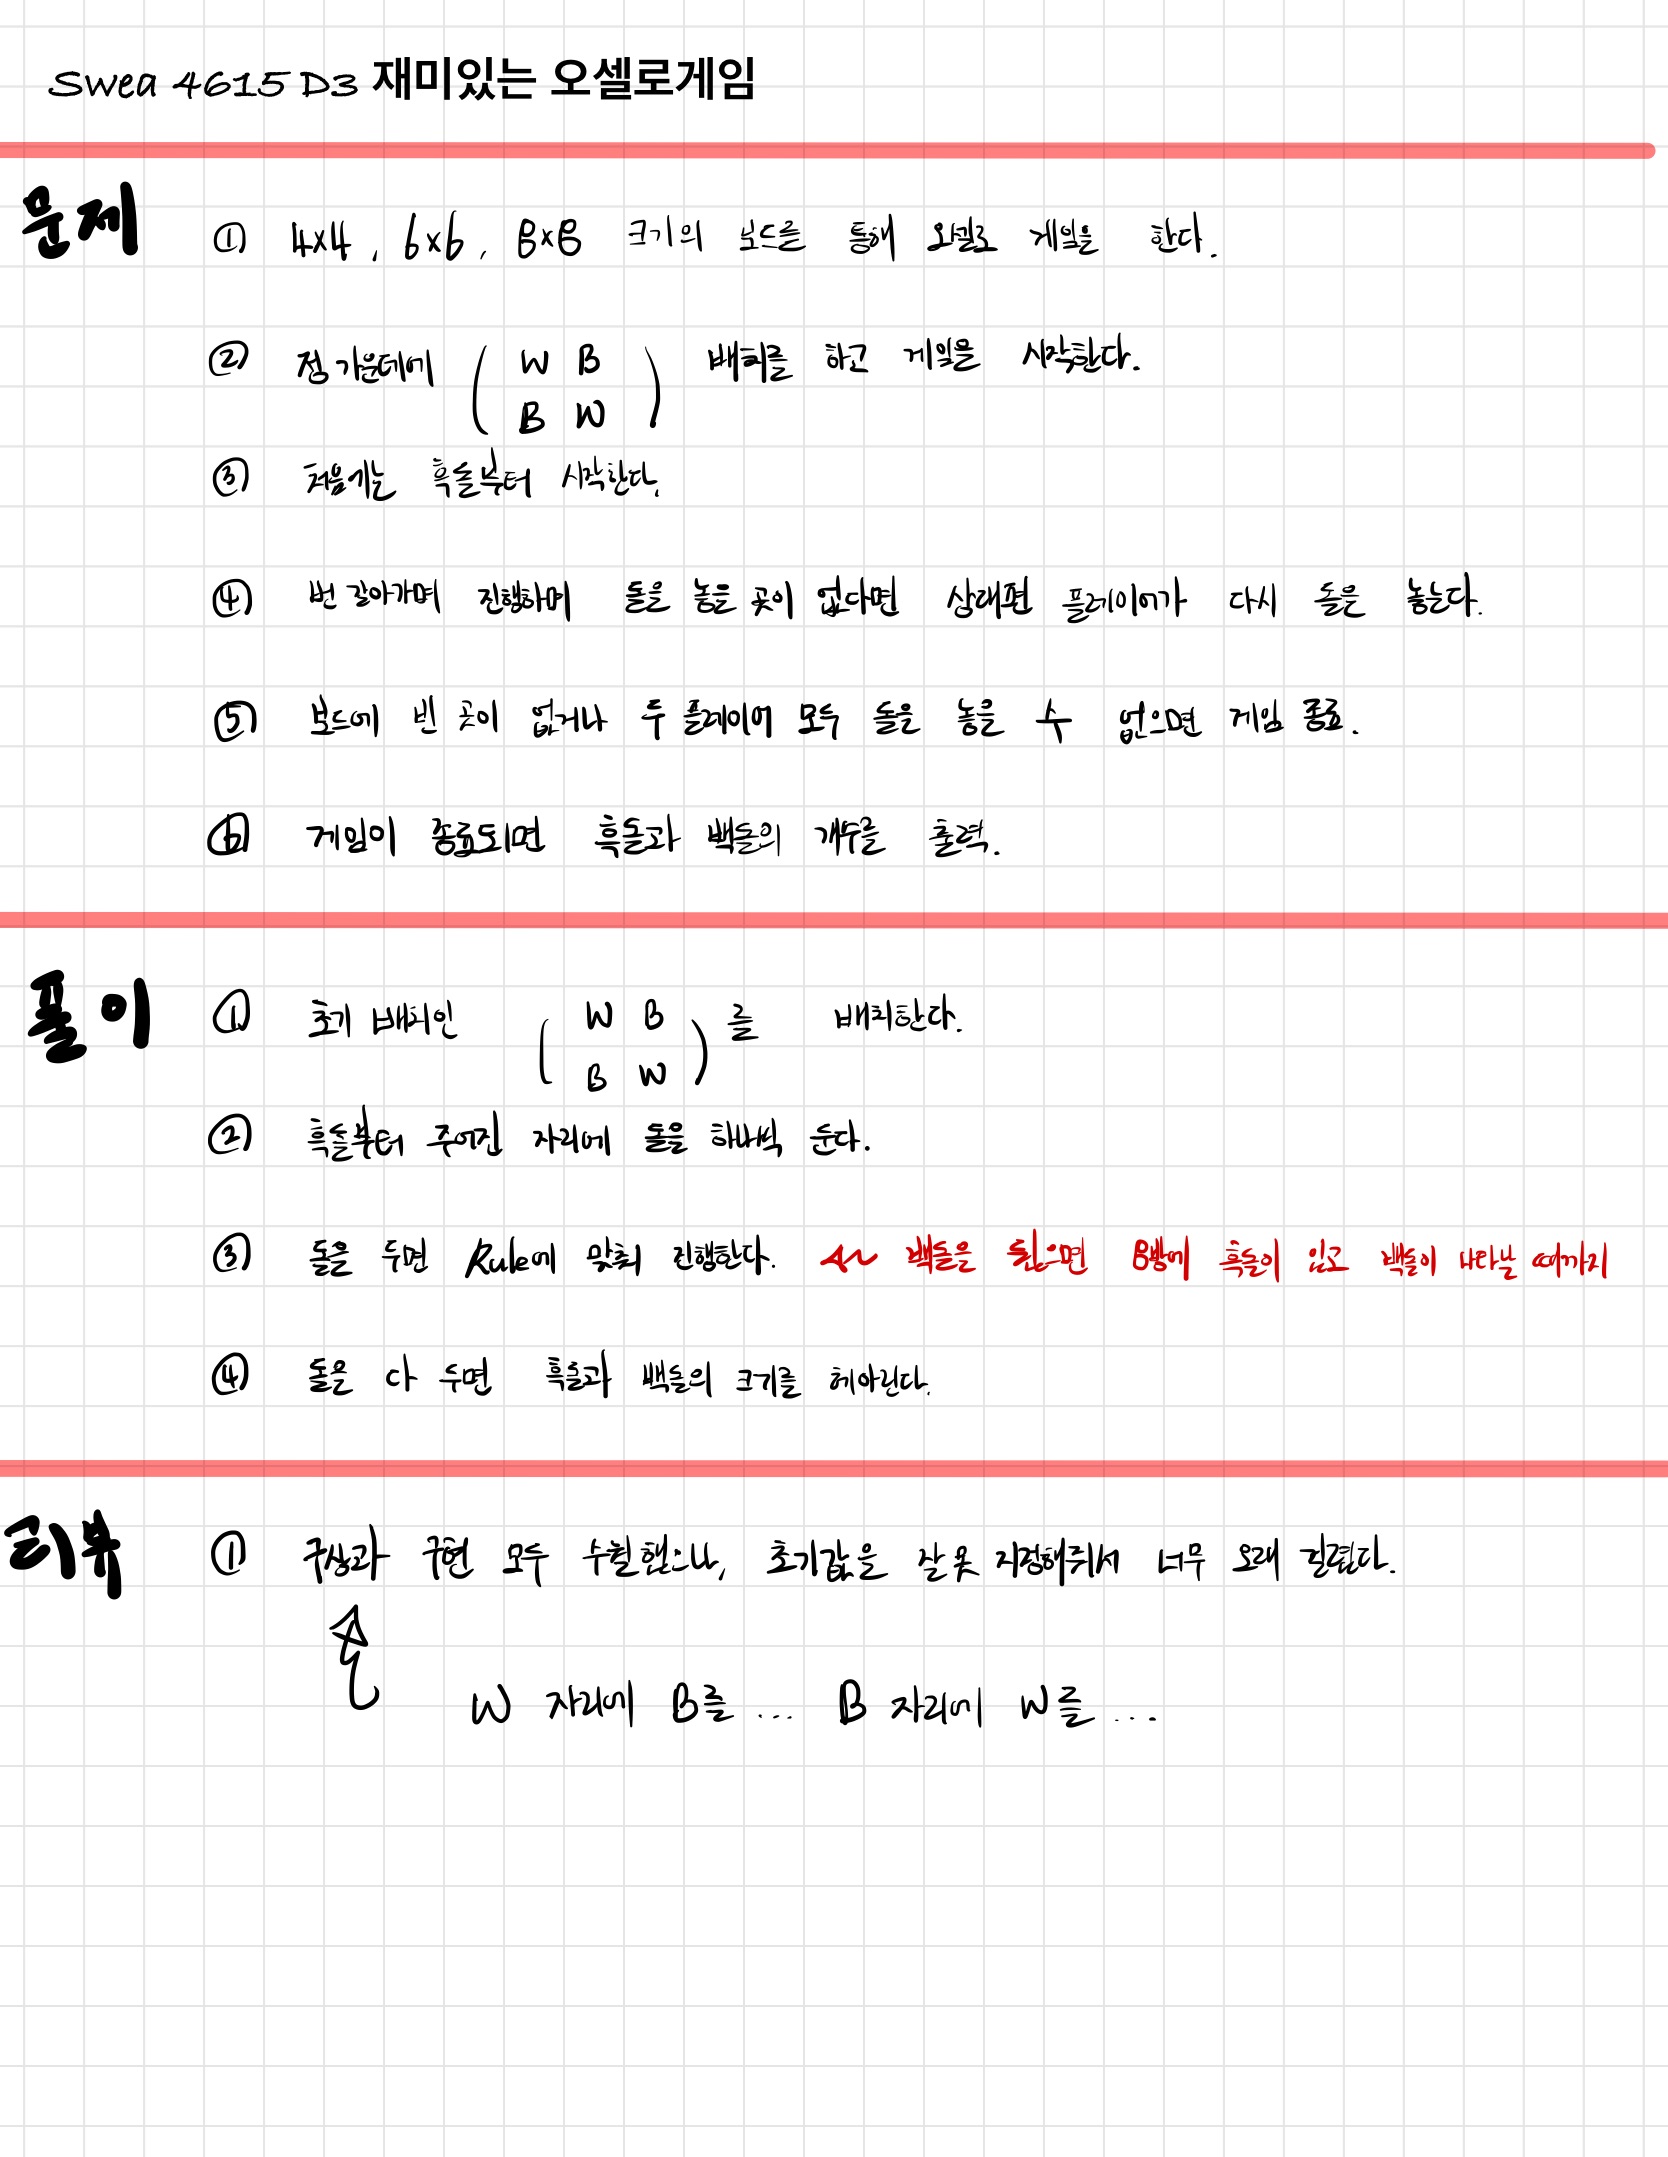 Swea 4615 D3 재미있는 오셀로게임
문제
① 4x4, 6x6, 8x8 크기의 보드를 통해 오셀로 게임을 한다.
② 정 가운데에 ( W B 배치를 하고 게임을 시작한다.
B W )
③ 처음에는 흑돌부터 시작한다.
④ 번 갈아가며 진행하며 돌을 놓을 곳이 없다면 상대편 플레이어가 다시 돌을 놓는다.
⑤ 보드에 빈 곳이 없거나 두 플레이어 모두 돌을 놓을 수 없으면 게임 종료.
⑥ 게임이 종료되면 흑돌과 백돌의 개수를 출력.
풀이
① 초기 배치인 ( W B 를 배치한다.
B W )
② 흑돌부터 주어진 자리에 돌을 하나씩 둔다.
③ 돌을 두면 Rule에 맞춰 진행한다. 백돌을 뒀으면 8방에 흑돌이 있고 백돌이 나타날 때까지
④ 돌을 다 두면 흑돌과 백돌의 크기를 헤아린다.
리뷰
① 구상과 구현 모두 수월했으나, 초기값을 잘못 지정해줘서 너무 오래 걸렸다.
W 자리에 B를 ... B 자리에 W를 ...